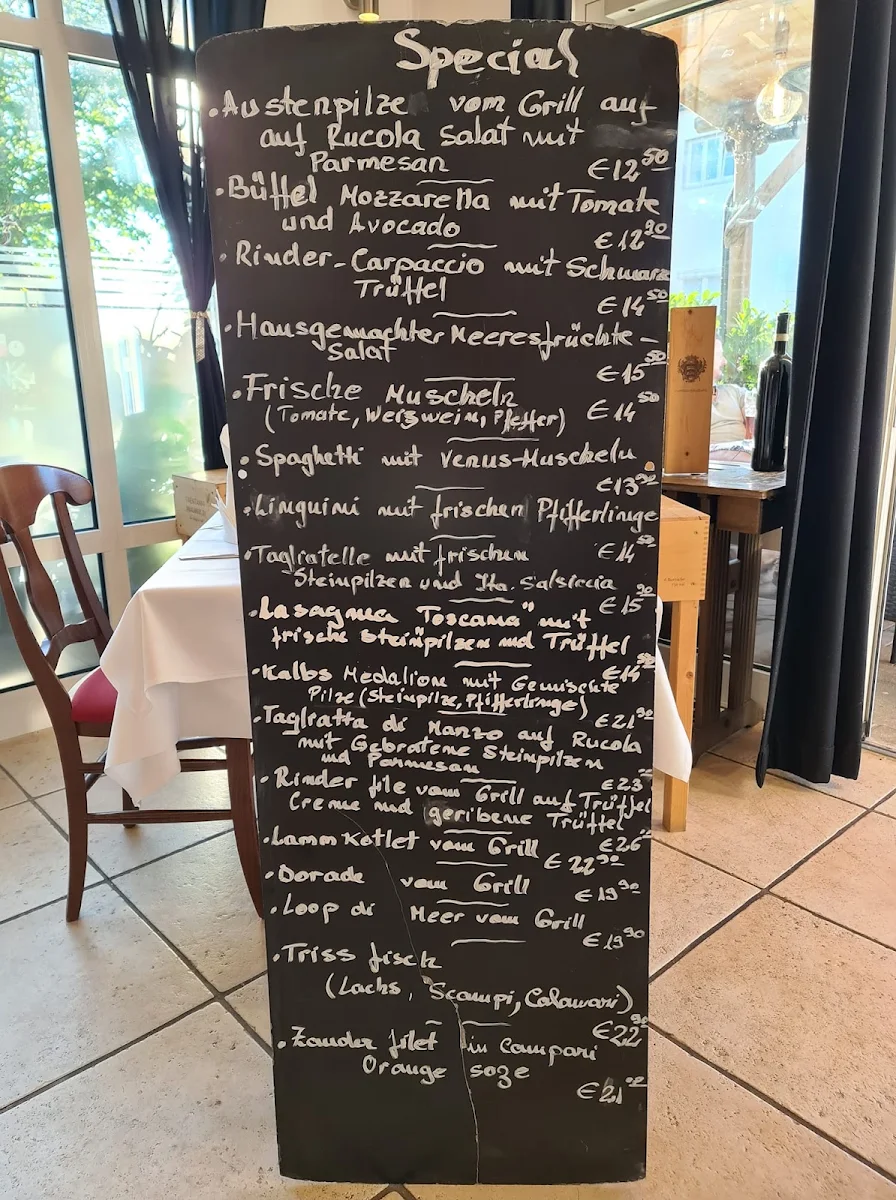 Special
• Austenpilze vom Grill auf
auf Rucola Salat mit
Parmesan €12⁵⁰
• Büffel Mozzarella mit Tomate
und Avocado €12⁹⁰
• Rinder-Carpaccio mit Schwarze
Trüffel €14⁵⁰
• Hausgemachter Meeresfrüchte-
Salat €15⁵⁰
• Frische Muscheln
(Tomate, Weiswein, Pfeffer) €14⁵⁰
• Spaghetti mit Venus-Muscheln
€13⁹⁰
• Linguini mit frischen Pfifferlinge
€14⁵⁰
• Tagliatelle mit frischen
Steinpilzen und Ita. Salsiccia
€15⁹⁰
• Lasagna Toscana" mit
frische Steinpilzen und Trüffel
€14⁹⁰
• Kalbs Medalion mit Gemischte
Pilze (Steinpilze, Pfifferlinge) €21⁹⁰
• Tagliatta di Manzo auf Rucola
mit Gebratene Steinpilzen
und Parmesan €23
• Rinder file vom Grill auf Trüffel
Creme und geribene Trüffel
€26
• Lamm Kotlet vom Grill €22⁹⁰
• Dorade vom Grill €19⁹⁰
• Loop di Meer vom Grill
€19⁹⁰
• Triss fisch
(Lachs, Scampi, Calamari)
€22⁹⁰
• Zander filet in Campari
Orange soze
€21